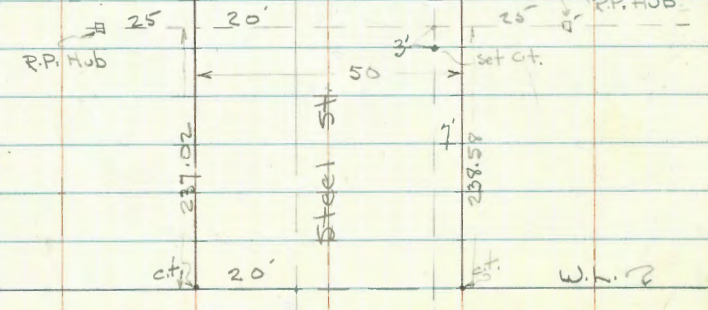 25 20' 25' R.P. HUB
R.P. Hub 3' set c.t.
50
Steel St.
237.02
238.58
c.t. 20' c.t. W.L.